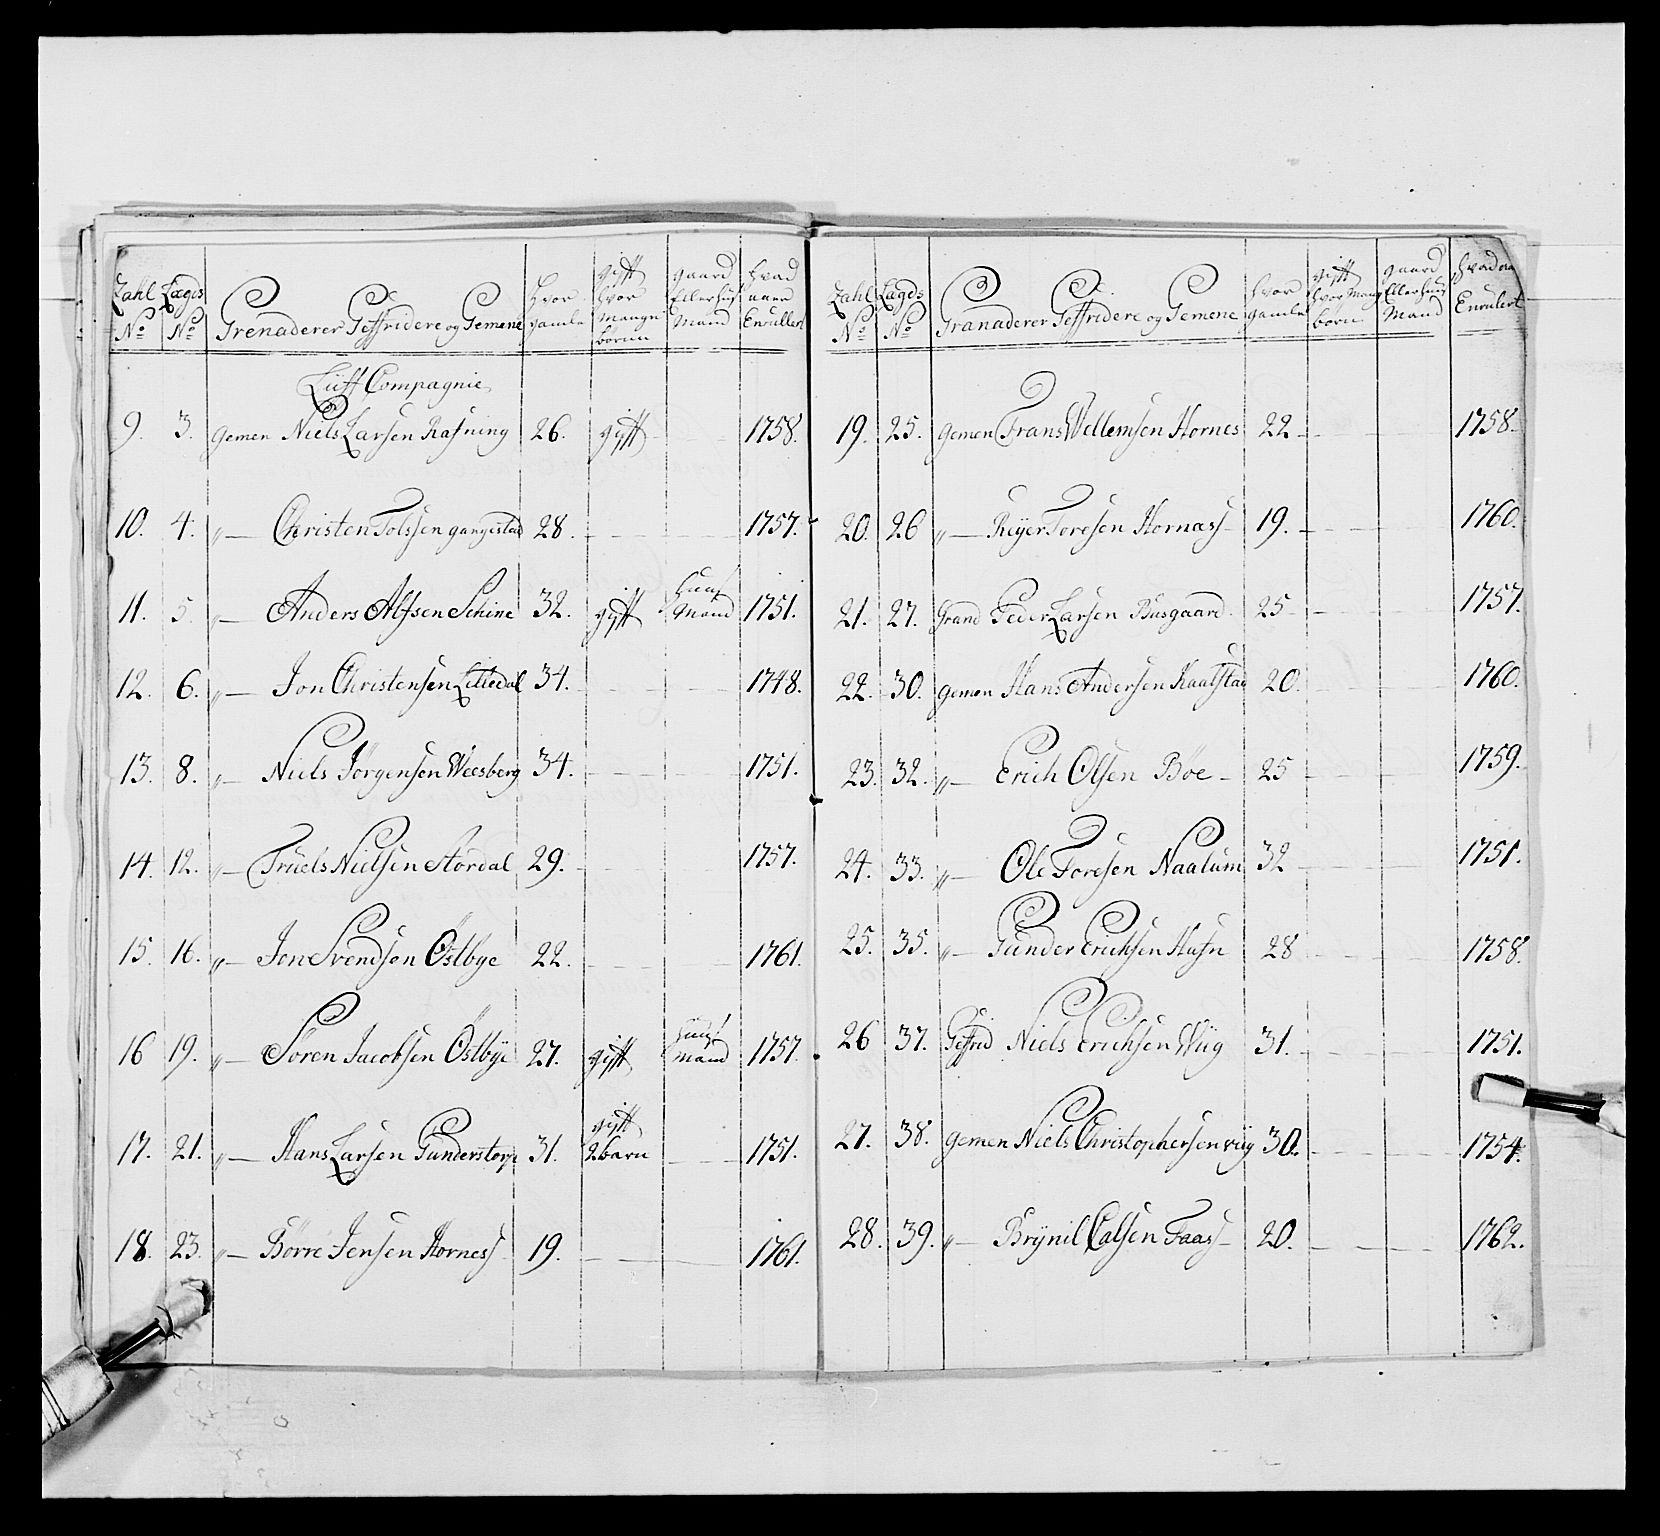 Zahl No Lægds No Grenaderer Geffridere og Gemene Hvor gamle gift hvor mange børnn gaard Eller huus Mand Hvad aaer Enrullert
Liiff Compagnie
9. 3. gemen Niels Larsen Rafning 26. gift 1758.
10. 4. „ — Christen Tolssen gangestad 28. 1757.
11. 5. „ — Anders Alfsen Schine 32. gift huus Mand 1751.
12. 6. „ — Jon Christensen Litledal 34. 1748.
13. 8. „ — Niels Jørgensen Weesberg 34. 1751.
14. 12. „ — Truels Nielsen Størdal 29. 1757.
15. 16. „ — Jon Svendsen Östbye 22. 1761.
16 19. „ — Søren Jacobsen Östbÿe 27. gift huus mand 1757.
17. 21. „ — Hans Larsen Gunderstorp 31. gift 2 barn 1751.
18. 23. „ — Børre Jensen Hornes 19. 1761.
Zahl No Lægds No Granaderer Geffridere og Gemene hvor gamle gift hvor mang børn gaard Eller huus Mand hvad aar Enrulert
19. 25. gemen Frans Wellemsen Hornes 22 1758.
20. 26 „ — Reÿer Toresen Hornæss 19. 1760.
21. 27. Grand Peder Larsen Busgaard 25 1757.
22. 30. gemen Hans Andersen Kaalstad 20. 1760.
23. 32. „ — Erich Olsen Bøe 25 1759.
24. 33. „ — Ole Toresen Naalum 32 1751.
25. 35. „ — Gunder Erichsen Hafn 28 1758.
26 37. Geffrid Niels Erichsen Wiig 31. 1751.
27. 38. gemen Niels Christophersen viig 30. 1754.
28. 39. „ — Brÿnil Calsen Faass 20. 1762.